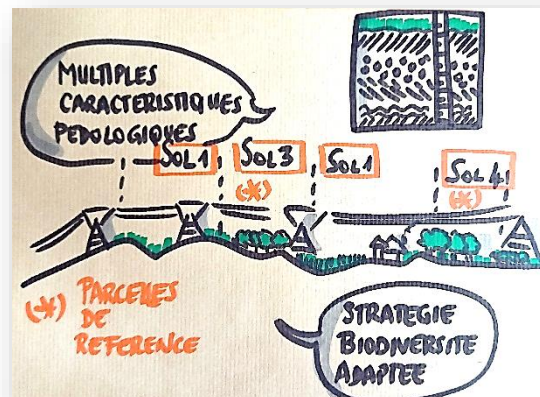 MULTIPLES
CARACTERISTIQUES
PEDOLOGIQUES
SOL 1
SOL 3
(*)
SOL 1
SOL 4
(*)
(*) PARCELLES
DE
REFERENCE
STRATEGIE
BIODIVERSITE
ADAPTEE